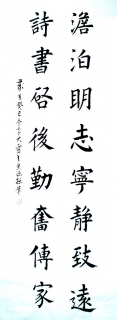 澹泊明志寧静致遠
詩書啓後勤奮傳家